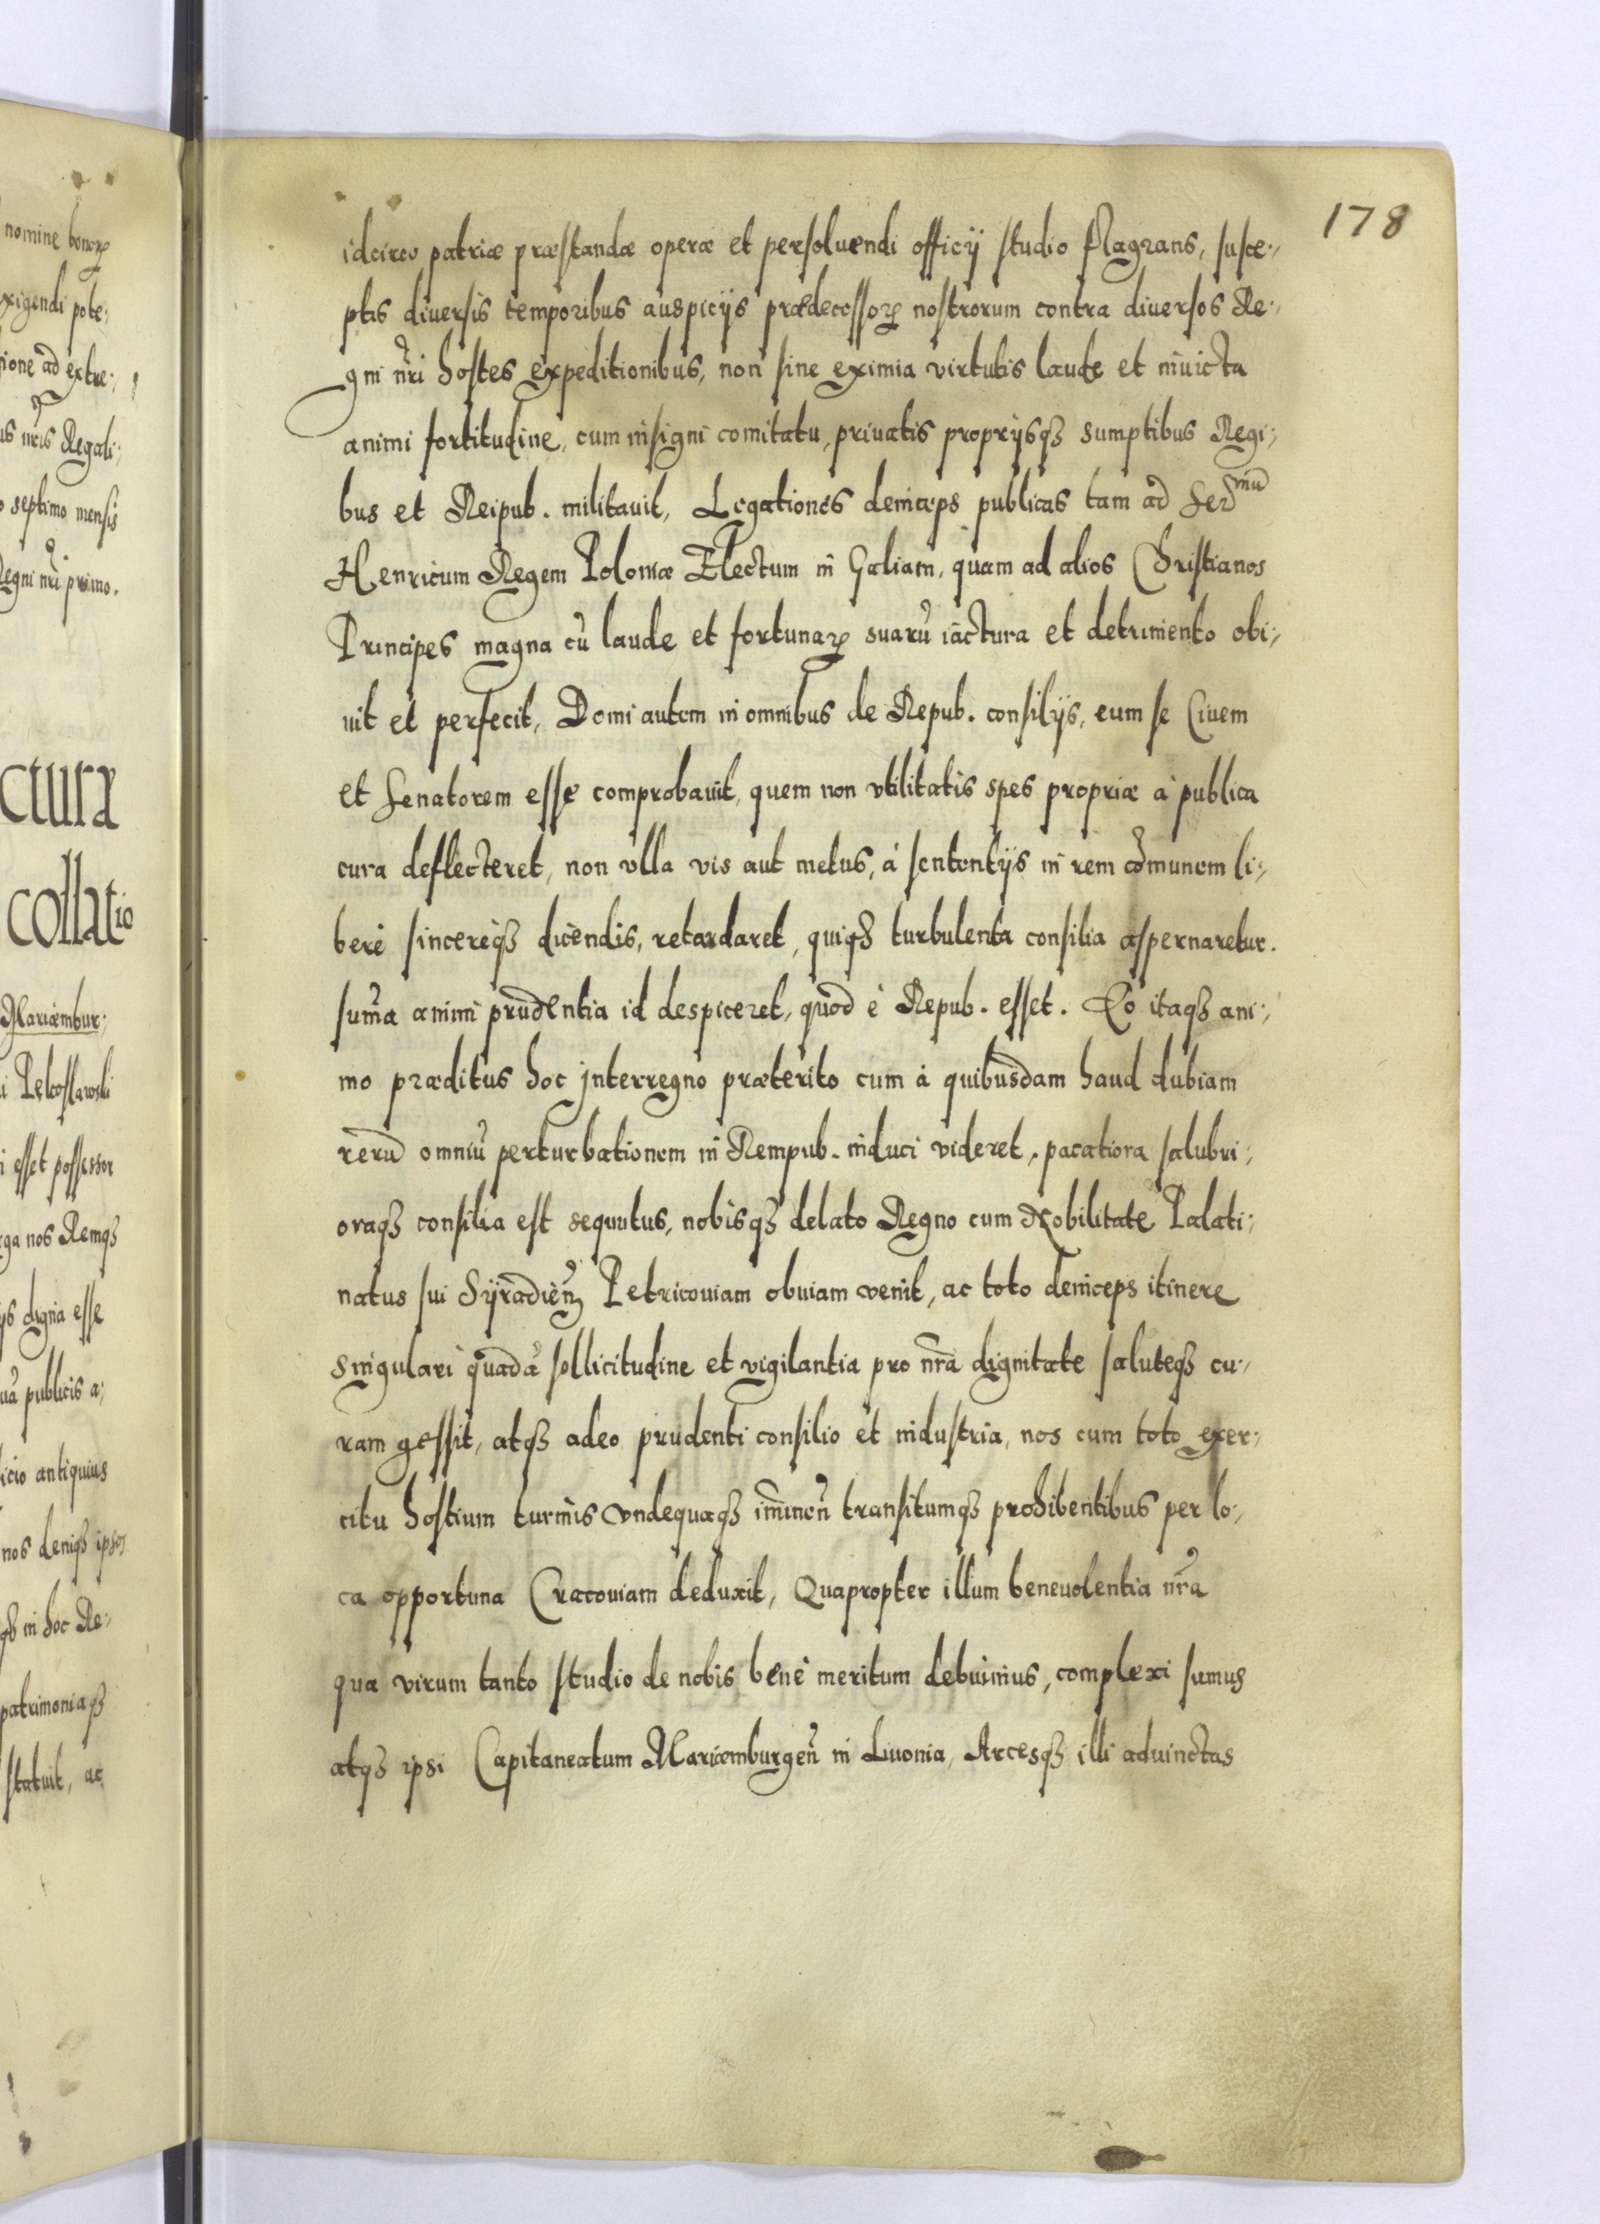 178
idcirco patriæ præstandæ operæ et persoluendi officij studio flagrans, susce-
ptis diuersis temporibus auspicijs prædecessorꝝ nostrorum contra diuersos Re-
gni nr̃i hostes expeditionibus, non sine eximia virtutis laude et inuicta
animi fortitudine, cum insigni comitatu, priuatis proprijsqꝫ sumptibus Regi-
bus et Reipub. militauit, Legationes deinceps publicas tam ad Ser^mũ
Henricum Regem Poloniæ Electum in Galiam, quam ad alios Christianos
Principes magna cũ laude et fortunaꝝ suarũ iactura et detrimento obi-
uit et perfecit, Domi autem in omnibus de Repub. consilijs, eum se Ciuem
et Senatorem esse comprobauit, quem non vtilitatis spes propriæ à publica
cura deflecteret, non vlla vis aut metus, à sententijs in rem cõmunem li-
berè sincerèqꝫ dicendis, retardaret, quiqꝫ turbulenta consilia aspernaretur.
sum̃a animi prudentia id despiceret, quod è Repub. esset. Eo itaqꝫ ani-
mo præditus hoc jnterregno præterito cum à quibusdam haud dubiam
rerũ omniũ perturbationem in Rempub. induci videret, pacatiora salubri-
oraqꝫ consilia est sequutus, nobisqꝫ delato Regno cum Nobilitate Palati-
natus sui Syradień Petricouiam obuiam venit, ac toto deinceps itinere
singulari quadã sollicitudine et vigilantia pro nr̃a dignitate saluteqꝫ cu-
ram gessit, atqꝫ adeo prudenti consilio et industria, nos cum toto exer-
citu hostium turmis vndequaqꝫ im̃ineñ transitumqꝫ prohibentibus per lo-
ca opportuna Cracouiam deduxit, Quapropter illum beneuolentia nr̃a
qua virum tanto studio de nobis benè meritum debuimus, complexi sumus
atqꝫ ipsi Capitaneatum Mariæmburgeñ in Liuonia, Arcesqꝫ illi aduinctas